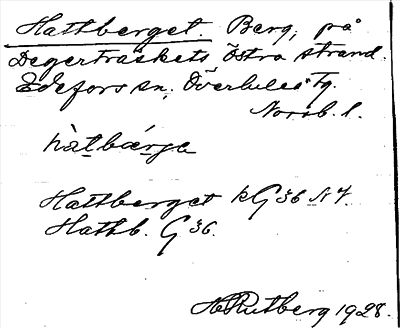 Hattberget. Berg, på
Degerträskets östra strand.
Edefors sn, Överlules Tg.
Norrb. l.
hàtbárjɛ
Hattberget kG36 N7.
Hattb. G36.
H Rutberg 1928.